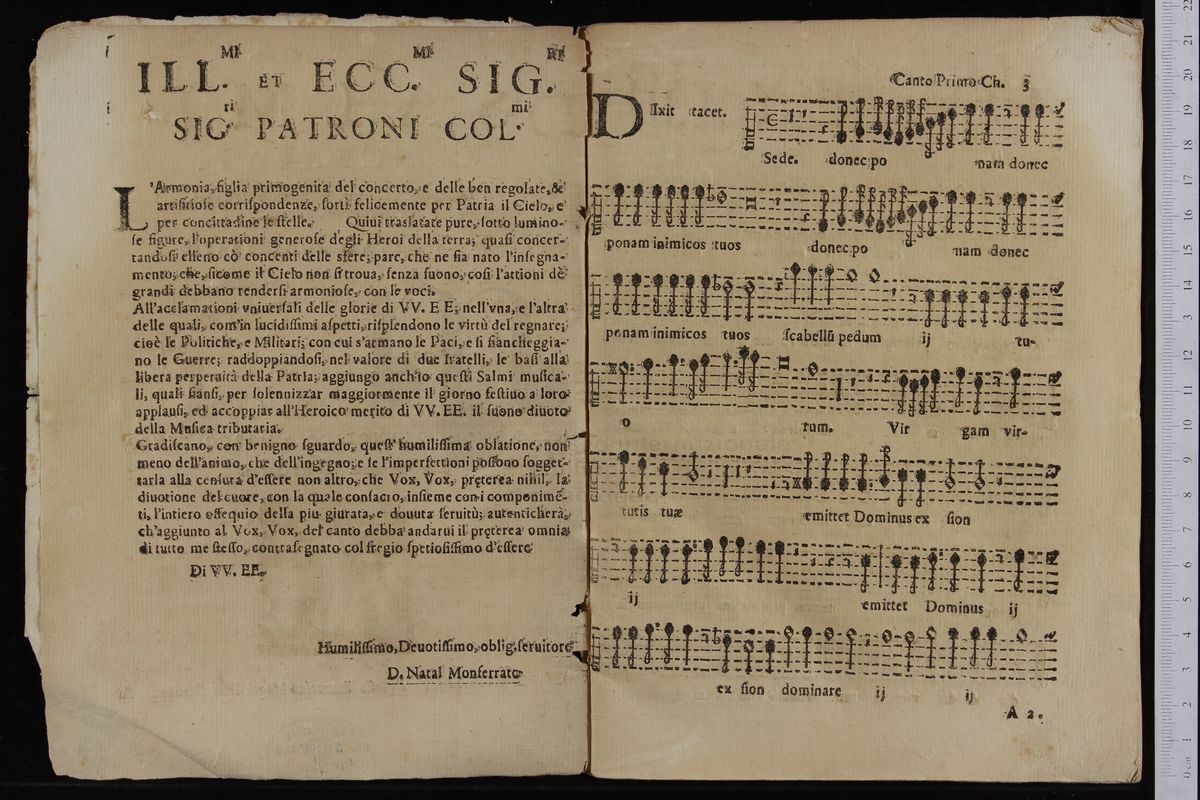 ILL.MI ET ECC.MI SIG.RI
SIG.ri PATRONI COL.mi
L'Armonia, figlia primogenita del concerto, e delle ben regolate, &
artifitiose corrispondenze, sortì felicemente per Patria il Cielo, e
per concittadine le stelle. Quiui traslatate pure, sotto lumino-
se figure, l'operationi generose degli Heroi della terra; quasi concer-
tandosi elleno cō concenti delle sfere; pare, che ne sia nato l'insegna-
mento; che, sicome il Cielo non si troua, senza suono, così l'attioni dē
grandi debbano rendersi armoniose, con le voci.
All'acclamationi vniuersali delle glorie di VV. EE; nell'vna, e l'altra
delle quali, com'in lucidissimi aspetti, risplendono le virtù del regnare;
cioè le Politiche, e Militari; con cui s'armano le Paci, e si fiancheggia-
no le Guerre; raddoppiandosi, nel valore di due fratelli, le basi alla
libera perpetuità della Patria; aggiungo anch'io questi Salmi musica-
li, quali siansi, per solennizzar maggiormente il giorno festiuo a loro
applausi, ed accoppiar all'Heroico merito di VV. EE. il suono diuoto
della Musica tributaria.
Gradiscano, con benigno sguardo, quest' humilissima oblatione, non
meno dell'animo, che dell'ingegno; e se l'imperfettioni possono sogget-
tarla alla censura d'essere non altro, che Vox, Vox, pręterea nihil, la
diuotione del cuore, con la quale consacro, insieme con i componimē-
ti, l'intiero ossequio della più giurata, e douuta seruitù; autenticherà,
ch'aggiunto al Vox, Vox, del canto debba andarui il pręterea omnia
di tutto me stesso, contrasegnato col fregio spetiosissimo d'essere
Di VV. EE.
Humilissimo, Deuotissimo, oblig. seruitore
D. Natal Monferrato
Canto Primo Ch. 3
DIxit tacet.
Sede. donec po nam donec
ponam inimicos tuos donec po nam donec
ponam inimicos tuos scabellū pedum ij tu-
o rum. Vir gam vir-
tutis tuæ emittet Dominus ex sion
ij emittet Dominus ij
ex sion dominare ij ij
A 2.